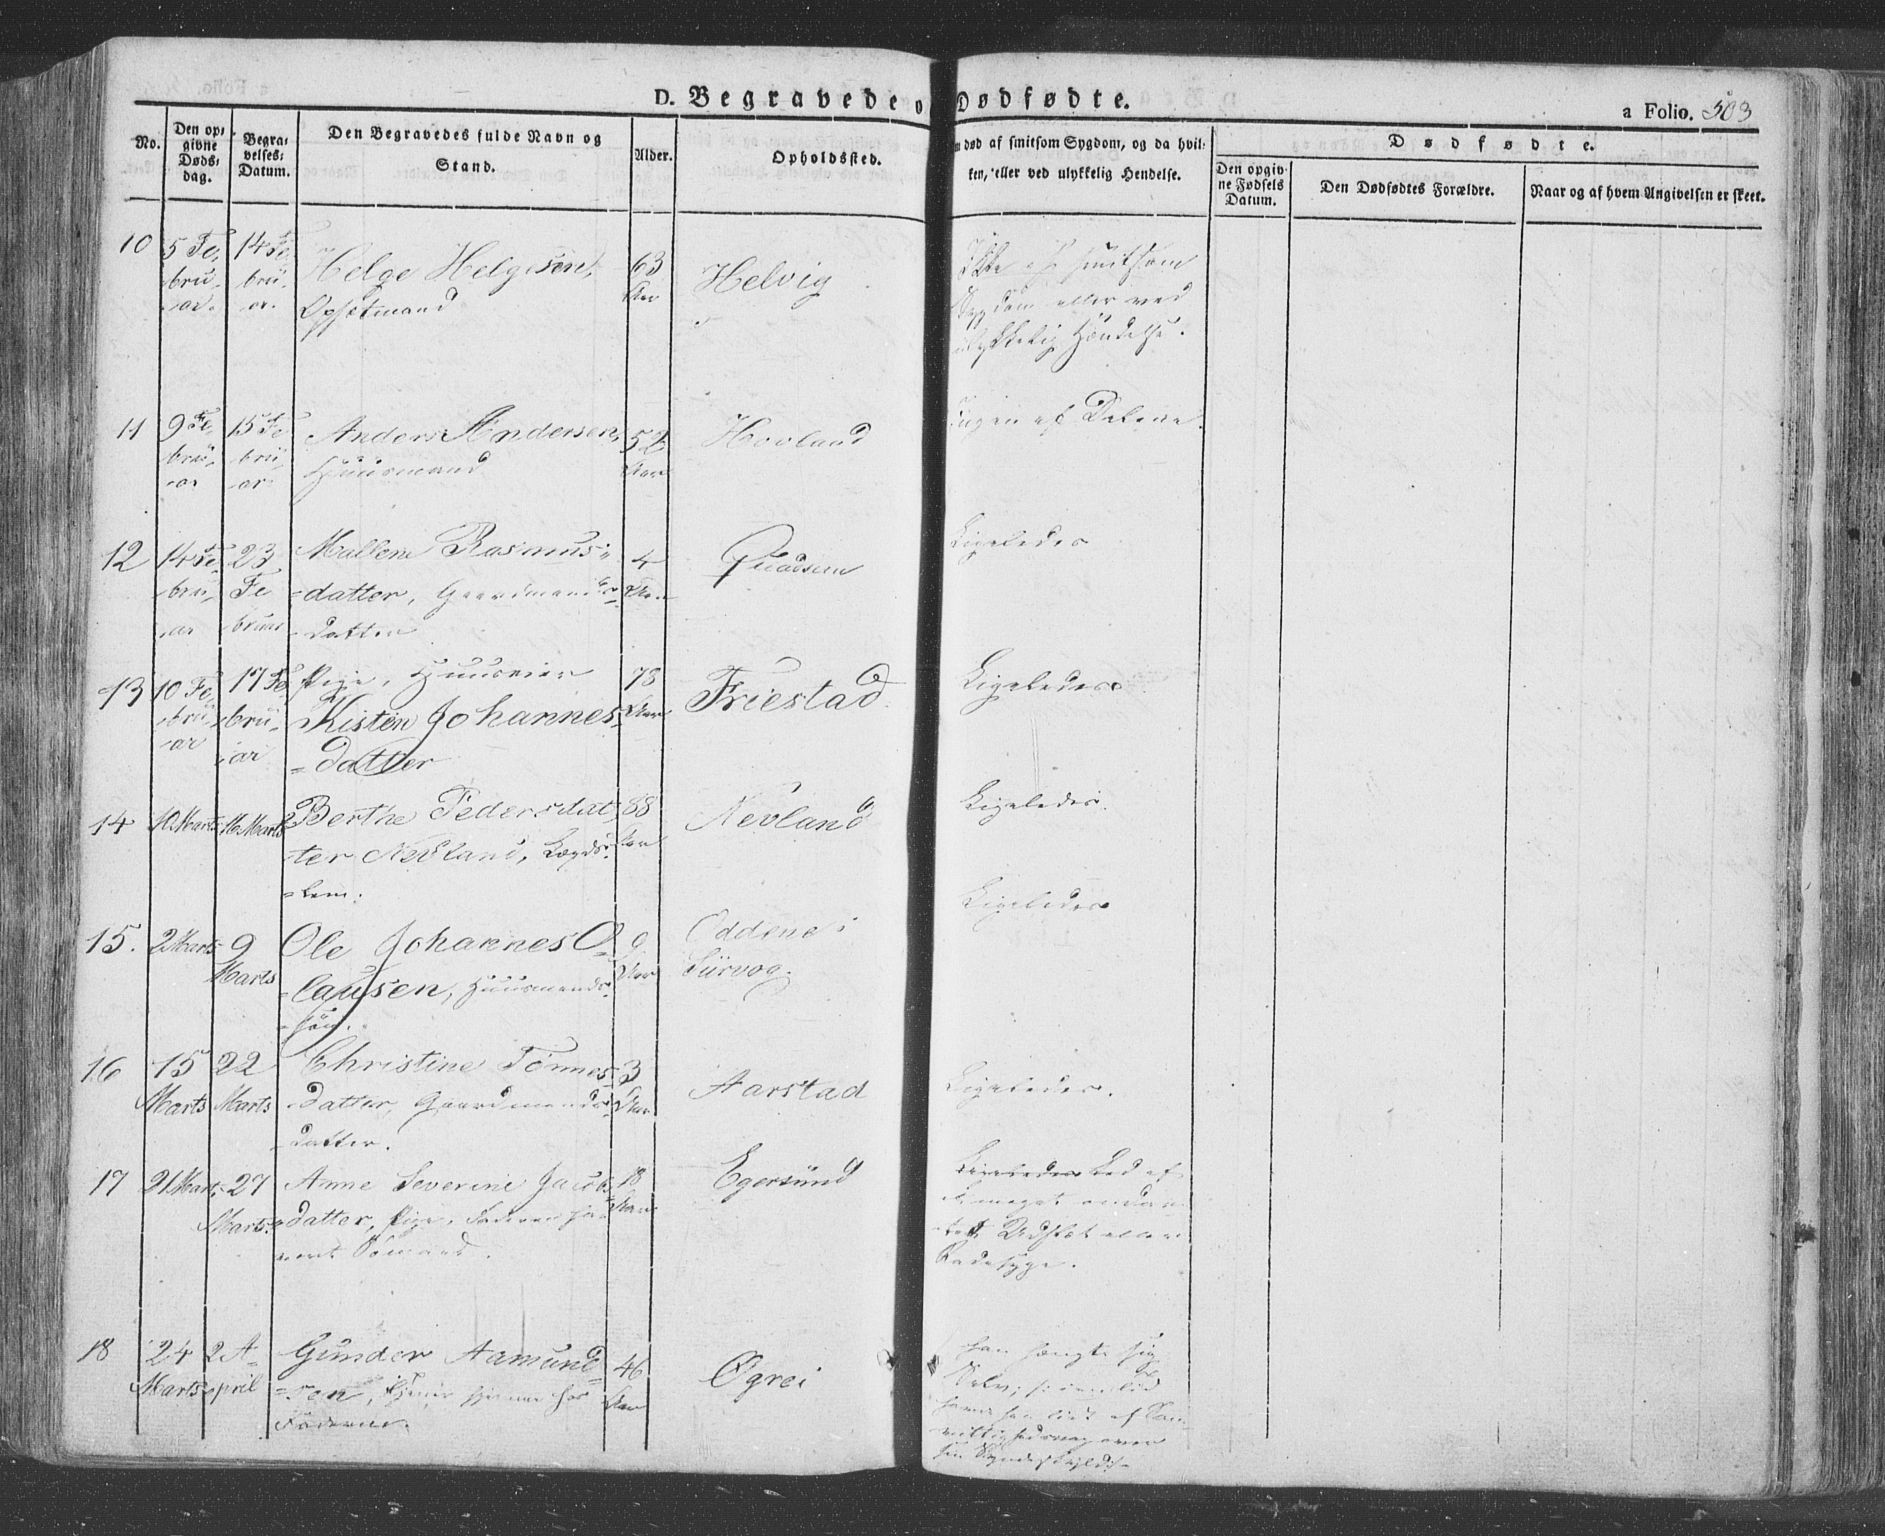 D. Begravede o Dødfødte.
a Folio. 503
No.
Den op-
givne
Døds-
dag.
Begra-
velses-
Datum.
Den Begravedes fulde Navn og
Stand.
Alder.
Opholdssted.
m død af smitsom Sygdom, og da hvil-
ken, eller ved ulykkelig Hendelse.
Dødfødte.
Den opgiv-
ne Fødsels
Datum.
Den Dødfødtes Forældre.
Naar og af hvem Angivelsen er skeet.
10
5 Fe-
bru-
ar.
14 Fe-
bru-
ar.
Helge Helgesen,
Opsetmand
63
Aar
Helvig
Ikke af smitsom
Sygdom eller ved
ulykkelig Hændelse.
11
9 Fe-
bru-
ar
15 Fe
bru-
ar
Anders Andersen,
Huusmand
52
Aar
Hovland
Ingen af Delene.
12
14 Fe-
bru-
ar
23
Fe
bruar
Mallene Rasmus-
datter, Gaardmands
Datter
4
Aar
Quadsem
Ligeledes
13
10 Fe-
bru-
ar
17 Fe-
bru-
ar
Pige, Huusvier
Kisten Johannes-
datter
78
Aar
Friestad
Ligeledes
14
10 Marts
16 Marts
Berthe Pedersdat-
ter Nevland, Lægds-
lem.
88
Aar
Nevland
Ligeledes.
15.
2 Marts
9
Marts
Ole Johannes O-
lausen, Huusmands
søn.
9
Aar
Oddene i
Siirvog.
Ligeledes
16
15
Marts
22
Marts
Christine Tønnes-
datter, Gaardmands
Datter.
3
Aar
Aarstad
Ligeledes.
17
21 Mart.
27
Marts.
Anne Severine Jacobs-
datter, Pige, Faderen
været Sømand.
18
Aar
Egersünd
Ligeledes Led af
meget
Udslæt eller
Radesyge.
18
24
Marts
2 A-
pril
Gunder Aamund-
sen, hjemme hos
Forældrene.
46
Aar
Øgrei
han hængte sig
Selv;
havde han lidt af Sam-
vittighedsnag over
sin Syndeskyld.